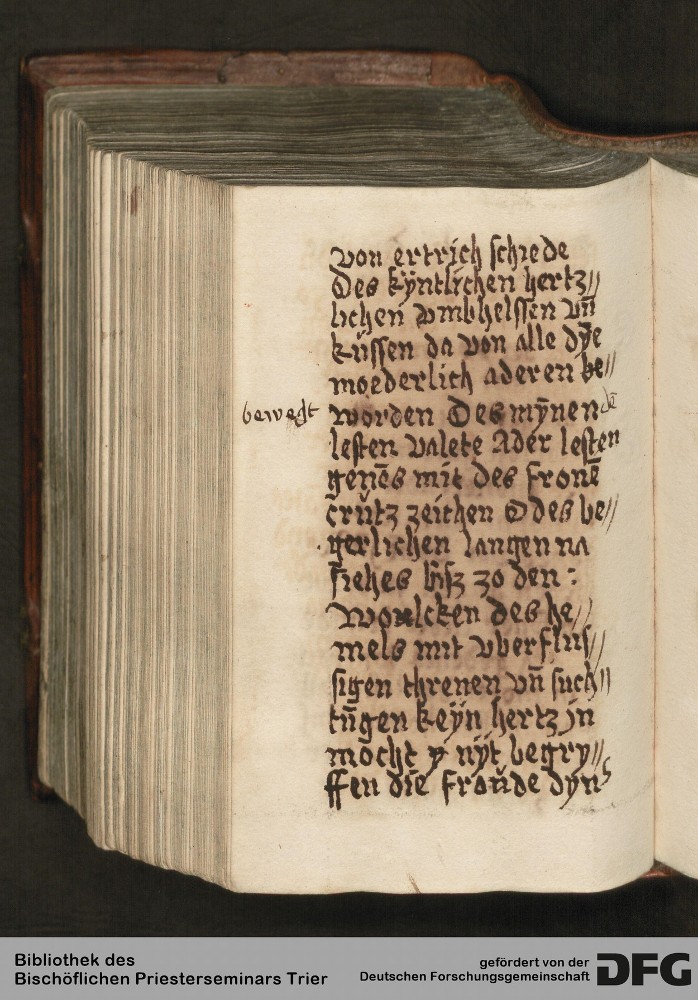 von ertrich schiede
Des kÿntlichen hertz//
lichen vmbhelssen vn̄
küssen da von alle dÿe
moederlich aderen be//
bewegt worden O des mÿnen
lesten valete Ader lesten
segenēs mit des fronē
crütz zeichen O des be//
gerlichen langen na
siehes bisz zo den :
Woulcken des he//
mels mit vberflus//
sigen threnen vn̄ such//
tūgen keÿn hertz jn
mocht y nÿt begry//
ffen die fraude dyns
Bibliothek des
Bischöflichen Priesterseminars Trier
gefördert von der
Deutschen Forschungsgemeinschaft
DFG